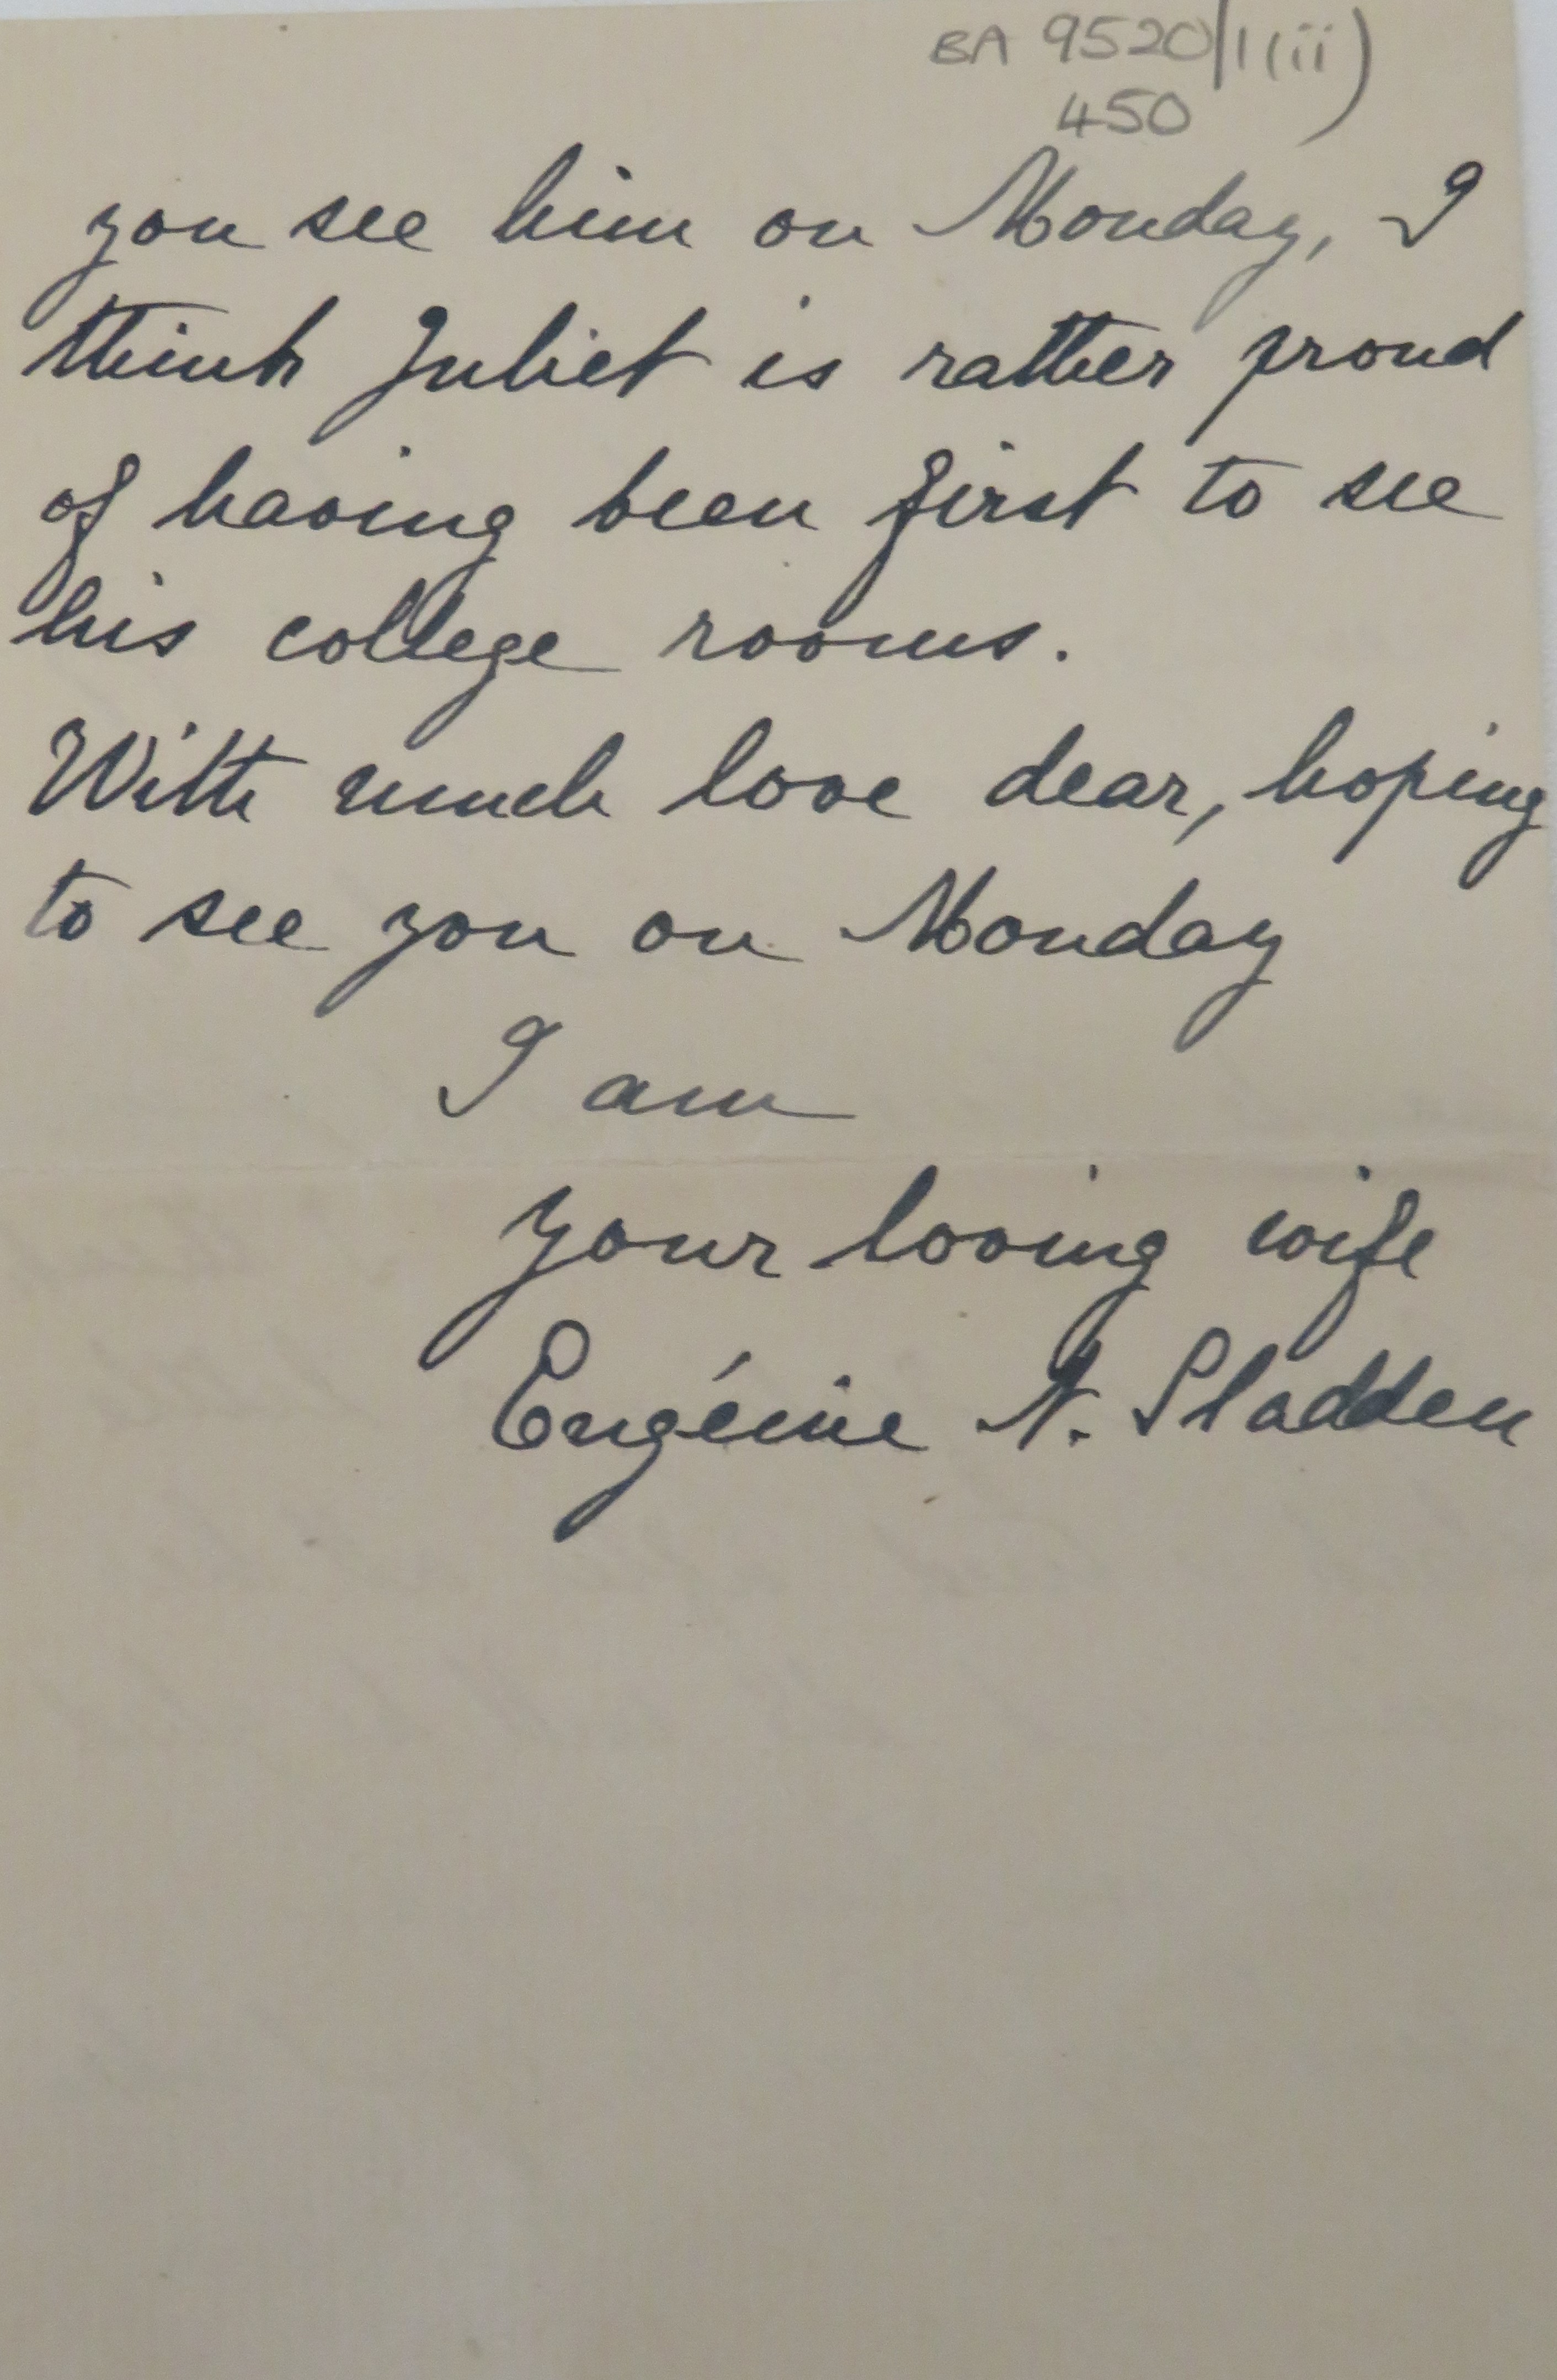 BA 9520/1(ii)
450
you see him on Monday, I
think Juliet is rather proud
of having been first to see
his college rooms.
With much love dear, hoping
to see you on Monday
I am
your loving wife
Eugénie N. Sladden